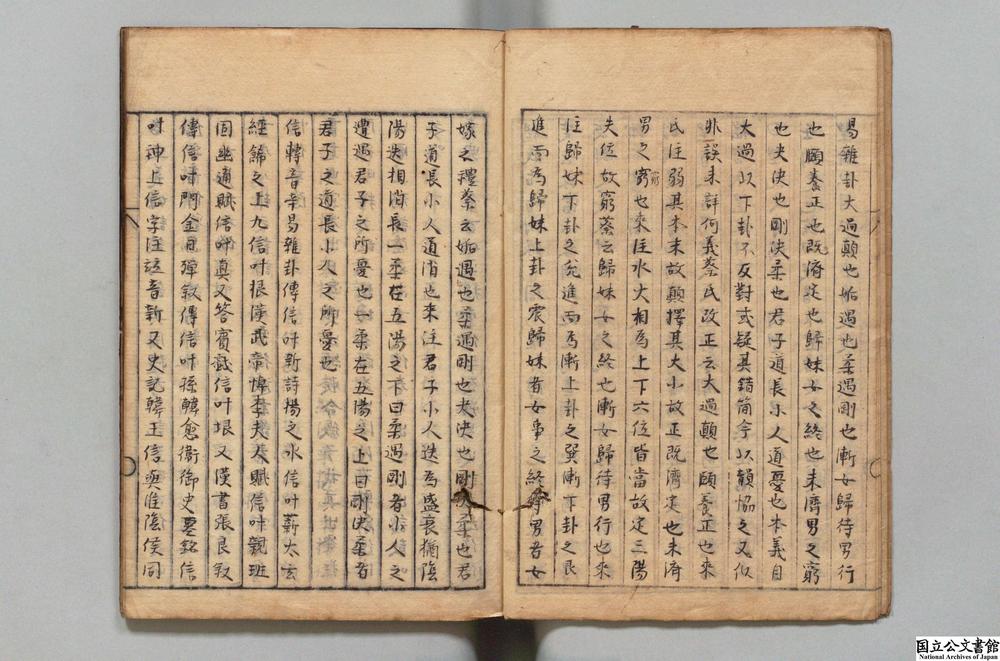 易雜卦大過顛也姤遇也柔遇剛也漸女歸待男行
也頤養正也既濟定也歸妹女之終也未濟男之窮
也夬決也剛決柔也君子道長小人道憂也本義自
大過以下卦不反對或疑其錯簡今以韻協之又似
非誤未詳何義蔡氏改正云大過顛也頤養正也來
氏注弱其本末故顛擇其大小故正既濟定也未濟
男之窮也來注水火相為上下六位皆當故定三陽
失位故窮蔡云歸妹女之終也漸女歸待男行也來
注歸妹下卦之兌進而為漸上卦之巽漸下卦之艮
進而為歸妹上卦之震歸妹者女事之終待男者女
嫁之禮蔡云姤遇也柔遇剛也夬決也剛決柔也君
子道長小人道消也來注君子小人迭為盛衰猶陰
陽迭相消長一柔在五陽之下曰柔遇剛者小人之
遭遇君子之所憂也一柔在五陽之上曰剛決柔者
君子之道長小人之所憂也
信轉音辛易雜卦傳信叶新詩揚之水信叶薪太玄
經飾之上九信叶根漢武帝悼李夫人賦信叶親班
固幽通賦信叶真又答賓戲信叶垠又漢書張良叙
傳信叶門金日磾叙傳信叶孫韓愈衢御史墓銘信
叶神上信字注竝音新又史記韓王信與淮陰侯同
国立公文書館
National Archives of Japan